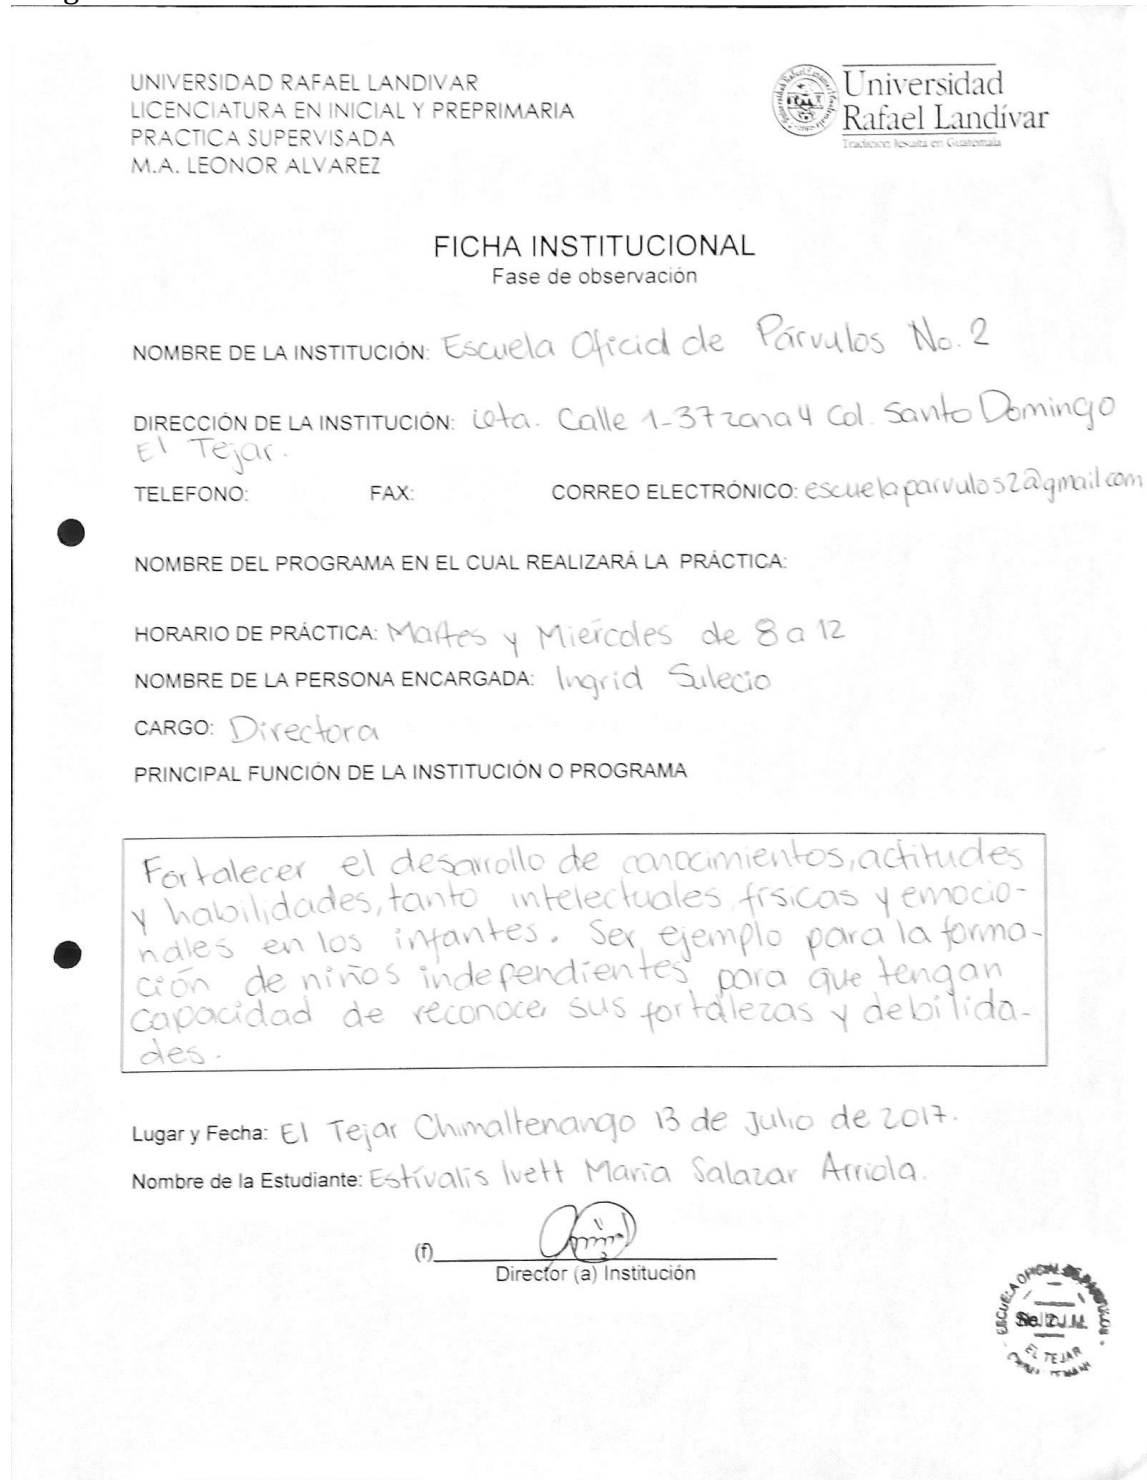 UNIVERSIDAD RAFAEL LANDIVAR
LICENCIATURA EN INICIAL Y PREPRIMARIA
PRACTICA SUPERVISADA
M.A. LEONOR ALVAREZ
Universidad
Rafael Landívar
Tradición Jesuita en Guatemala
FICHA INSTITUCIONAL
Fase de observación
NOMBRE DE LA INSTITUCIÓN: Escuela Oficial de Párvulos No. 2
DIRECCIÓN DE LA INSTITUCIÓN: Calle 1-37 zona 4 Col. Santo Domingo
El Tejar.
TELEFONO: FAX: CORREO ELECTRÓNICO: escuelaparvulos2@gmail.com
NOMBRE DEL PROGRAMA EN EL CUAL REALIZARÁ LA PRÁCTICA:
HORARIO DE PRÁCTICA: Martes y Miércoles de 8 a 12
NOMBRE DE LA PERSONA ENCARGADA: Ingrid Sulecio
CARGO: Directora
PRINCIPAL FUNCIÓN DE LA INSTITUCIÓN O PROGRAMA
Fortalecer el desarrollo de conocimientos, actitudes
y habilidades, tanto intelectuales, físicas y emocio-
nales en los infantes. Ser ejemplo para la forma-
ción de niños independientes para que tengan
capacidad de reconocer sus fortalezas y debilida-
des.
Lugar y Fecha: El Tejar Chimaltenango 13 de Julio de 2017.
Nombre de la Estudiante: Estívalis Ivett María Salazar Arriola.
(f)
Director (a) Institución
ESCUELA OFICIAL DE PARVULOS
EL TEJAR